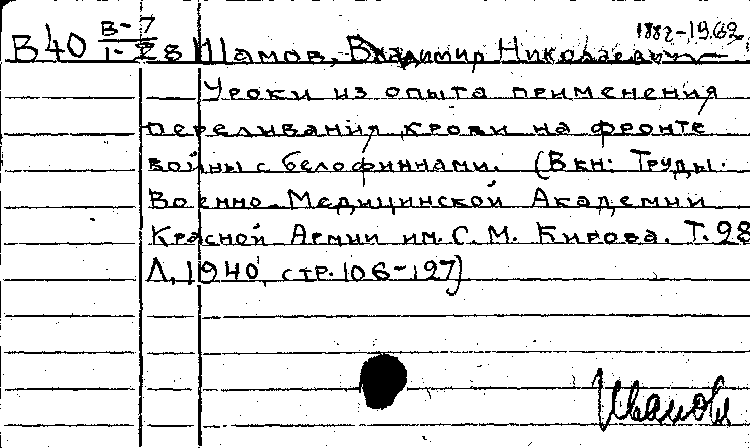 1882-1962
В40 В-7/1-28 Шамов, Владимир Николаевич
Уроки из опыта применения
переливания крови на фронте
войны с белофиннами. (В кн: Труды
Военно-Медицинской Академии
Красной Армии им. С. М. Кирова. Т. 28
Л, 1940, стр. 106-127)
Иванов